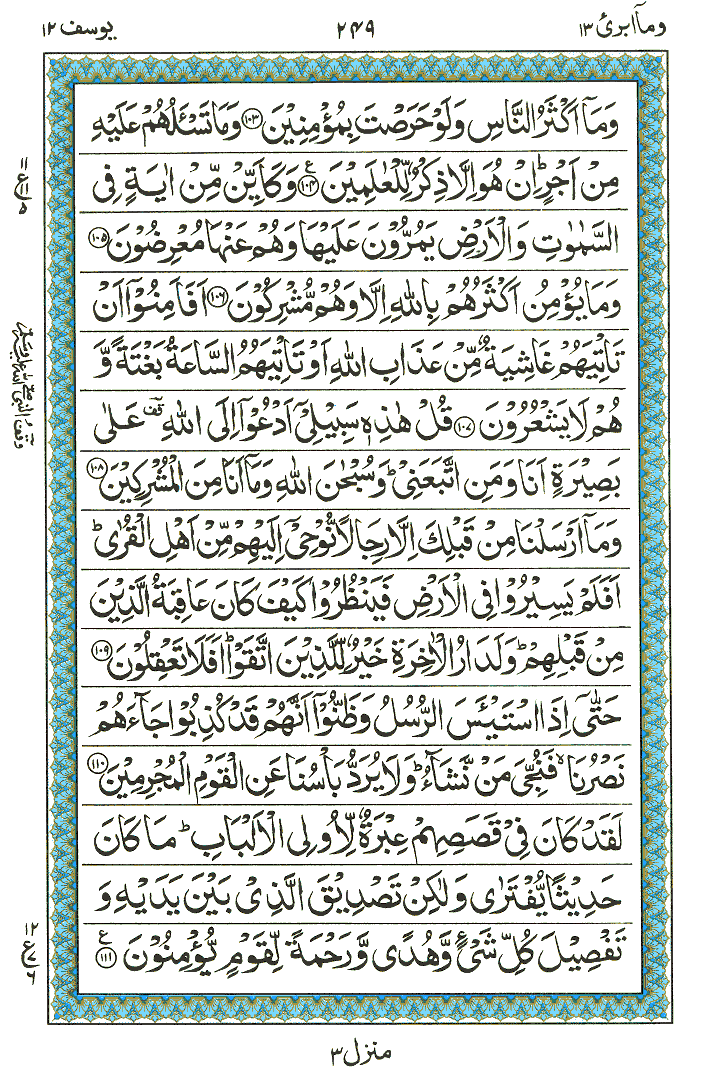 وماۤ ابرئ ١٣
٢٤٩
يوسف ١٢
وَمَاۤ اَكْثَرُ النَّاسِ وَلَوْ حَرَصْتَ بِمُؤْمِنِيْنَ ﴿١٠٣﴾ وَمَا تَسْـَٔلُهُمْ عَلَيْهِ
مِنْ اَجْرٍ ؕ اِنْ هُوَ اِلَّا ذِكْرٌ لِّلْعٰلَمِيْنَ ﴿١٠٤﴾ ع وَكَاَيِّنْ مِّنْ اٰيَةٍ فِى
السَّمٰوٰتِ وَالْاَرْضِ يَمُرُّوْنَ عَلَيْهَا وَهُمْ عَنْهَا مُعْرِضُوْنَ ﴿١٠٥﴾
وَمَا يُؤْمِنُ اَكْثَرُهُمْ بِاللّٰهِ اِلَّا وَهُمْ مُّشْرِكُوْنَ ﴿١٠٦﴾ اَفَاَمِنُوْۤا اَنْ
تَاْتِيَهُمْ غَاشِيَةٌ مِّنْ عَذَابِ اللّٰهِ اَوْ تَاْتِيَهُمُ السَّاعَةُ بَغْتَةً وَّ
هُمْ لَا يَشْعُرُوْنَ ﴿١٠٧﴾ قُلْ هٰذِهٖ سَبِيْلِىْۤ اَدْعُوْۤا اِلَى اللّٰهِ ؔ عَلٰى
بَصِيْرَةٍ اَنَا وَمَنِ اتَّبَعَنِىْ ؕ وَسُبْحٰنَ اللّٰهِ وَمَاۤ اَنَا مِنَ الْمُشْرِكِيْنَ ﴿١٠٨﴾
وَمَاۤ اَرْسَلْنَا مِنْ قَبْلِكَ اِلَّا رِجَالًا نُّوْحِىْۤ اِلَيْهِمْ مِّنْ اَهْلِ الْقُرٰى ؕ
اَفَلَمْ يَسِيْرُوْا فِى الْاَرْضِ فَيَنْظُرُوْا كَيْفَ كَانَ عَاقِبَةُ الَّذِيْنَ
مِنْ قَبْلِهِمْ ؕ وَلَدَارُ الْاٰخِرَةِ خَيْرٌ لِّلَّذِيْنَ اتَّقَوْا ؕ اَفَلَا تَعْقِلُوْنَ ﴿١٠٩﴾
حَتّٰۤى اِذَا اسْتَيْـَٔسَ الرُّسُلُ وَظَنُّوْۤا اَنَّهُمْ قَدْ كُذِبُوْا جَآءَهُمْ
نَصْرُنَا ۙ فَنُجِّىَ مَنْ نَّشَآءُ ؕ وَلَا يُرَدُّ بَاْسُنَا عَنِ الْقَوْمِ الْمُجْرِمِيْنَ ﴿١١٠﴾
لَقَدْ كَانَ فِىْ قَصَصِهِمْ عِبْرَةٌ لِّاُولِى الْاَلْبَابِ ؕ مَا كَانَ
حَدِيْثًا يُّفْتَرٰى وَلٰكِنْ تَصْدِيْقَ الَّذِىْ بَيْنَ يَدَيْهِ وَ
تَفْصِيْلَ كُلِّ شَىْءٍ وَّهُدًى وَّرَحْمَةً لِّقَوْمٍ يُّؤْمِنُوْنَ ﴿١١١﴾ ع
١١
ع
٥
وقف النبى صلى الله عليه وسلم
١٢
ع
٦
منزل ٣